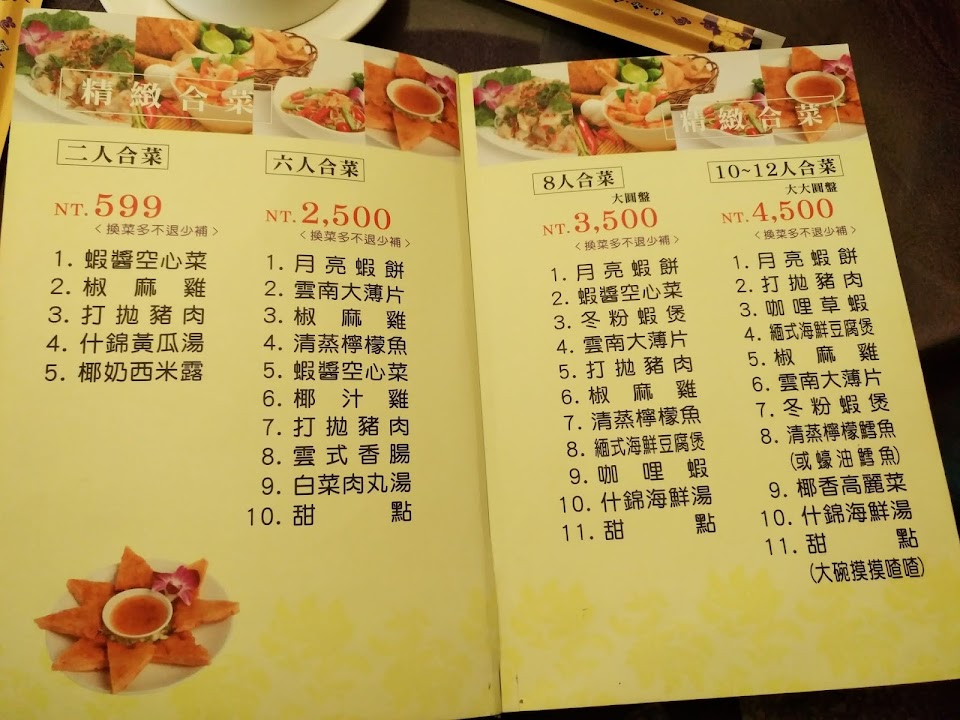 精緻合菜
二人合菜
NT. 599
<換菜多不退少補>
1. 蝦醬空心菜
2. 椒麻雞
3. 打拋豬肉
4. 什錦黃瓜湯
5. 椰奶西米露
六人合菜
NT. 2,500
<換菜多不退少補>
1. 月亮蝦餅
2. 雲南大薄片
3. 椒麻雞
4. 清蒸檸檬魚
5. 蝦醬空心菜
6. 椰汁雞
7. 打拋豬肉
8. 雲式香腸
9. 白菜肉丸湯
10. 甜點
精緻合菜
8人合菜
大圓盤
NT. 3,500
<換菜多不退少補>
1. 月亮蝦餅
2. 蝦醬空心菜
3. 冬粉蝦煲
4. 雲南大薄片
5. 打拋豬肉
6. 椒麻雞
7. 清蒸檸檬魚
8. 緬式海鮮豆腐煲
9. 咖哩蝦
10. 什錦海鮮湯
11. 甜點
10~12人合菜
大大圓盤
NT. 4,500
<換菜多不退少補>
1. 月亮蝦餅
2. 打拋豬肉
3. 咖哩草蝦
4. 緬式海鮮豆腐煲
5. 椒麻雞
6. 雲南大薄片
7. 冬粉蝦煲
8. 清蒸檸檬鱈魚
(或蠔油鱈魚)
9. 椰香高麗菜
10. 什錦海鮮湯
11. 甜點
(大碗摸摸喳喳)